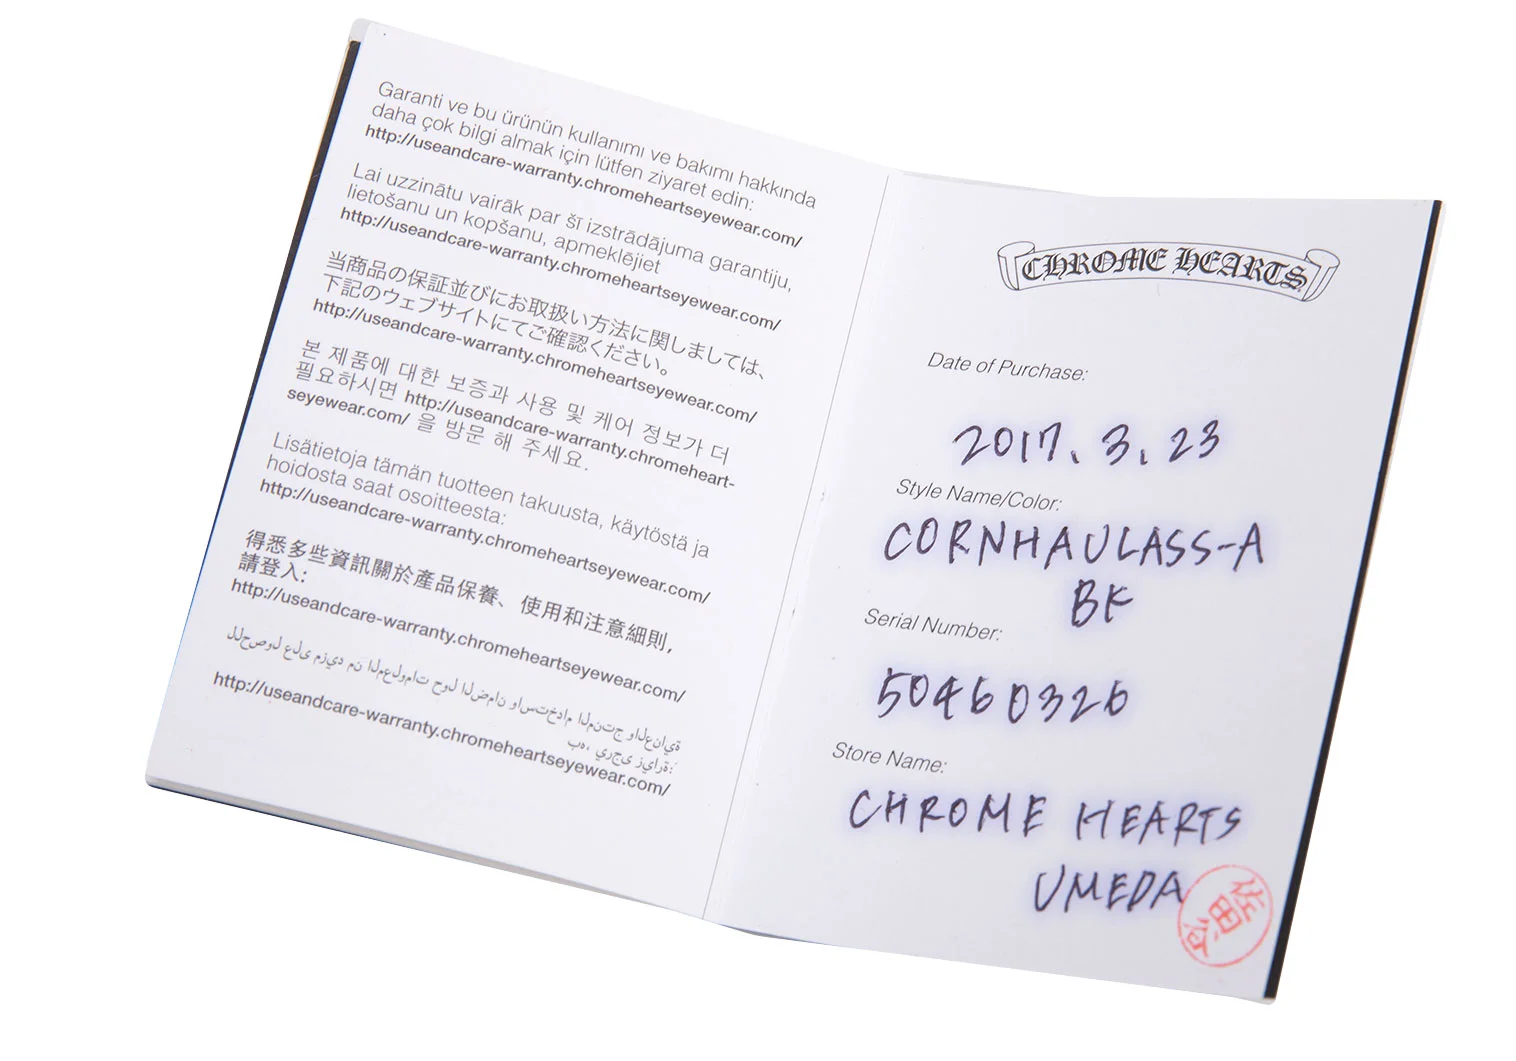 Garanti ve bu ürünün kullanımı ve bakımı hakkında
daha çok bilgi almak için lütfen ziyaret edin:
http://useandcare-warranty.chromeheartseyewear.com/
Lai uzzinātu vairāk par šī izstrādājuma garantiju,
lietošanu un kopšanu, apmeklējiet
http://useandcare-warranty.chromeheartseyewear.com/
当商品の保証並びにお取扱い方法に関しましては、
下記のウェブサイトにてご確認ください。
http://useandcare-warranty.chromeheartseyewear.com/
본 제품에 대한 보증과 사용 및 케어 정보가 더
필요하시면 http://useandcare-warranty.chromeheart-
seyewear.com/ 을 방문 해 주세요.
Lisätietoja tämän tuotteen takuusta, käytöstä ja
hoidosta saat osoitteesta:
http://useandcare-warranty.chromeheartseyewear.com/
得悉多些資訊關於產品保養、使用和注意細則,
請登入:
http://useandcare-warranty.chromeheartseyewear.com/
للحصول على مزيد من المعلومات حول الضمان واستخدام المنتج والعناية
به، يرجى زيارة:
http://useandcare-warranty.chromeheartseyewear.com/
CHROME HEARTS
Date of Purchase:
2017. 3. 23
Style Name/Color:
CORNHAULASS-A
BK
Serial Number:
50460326
Store Name:
CHROME HEARTS
UMEDA
佐田